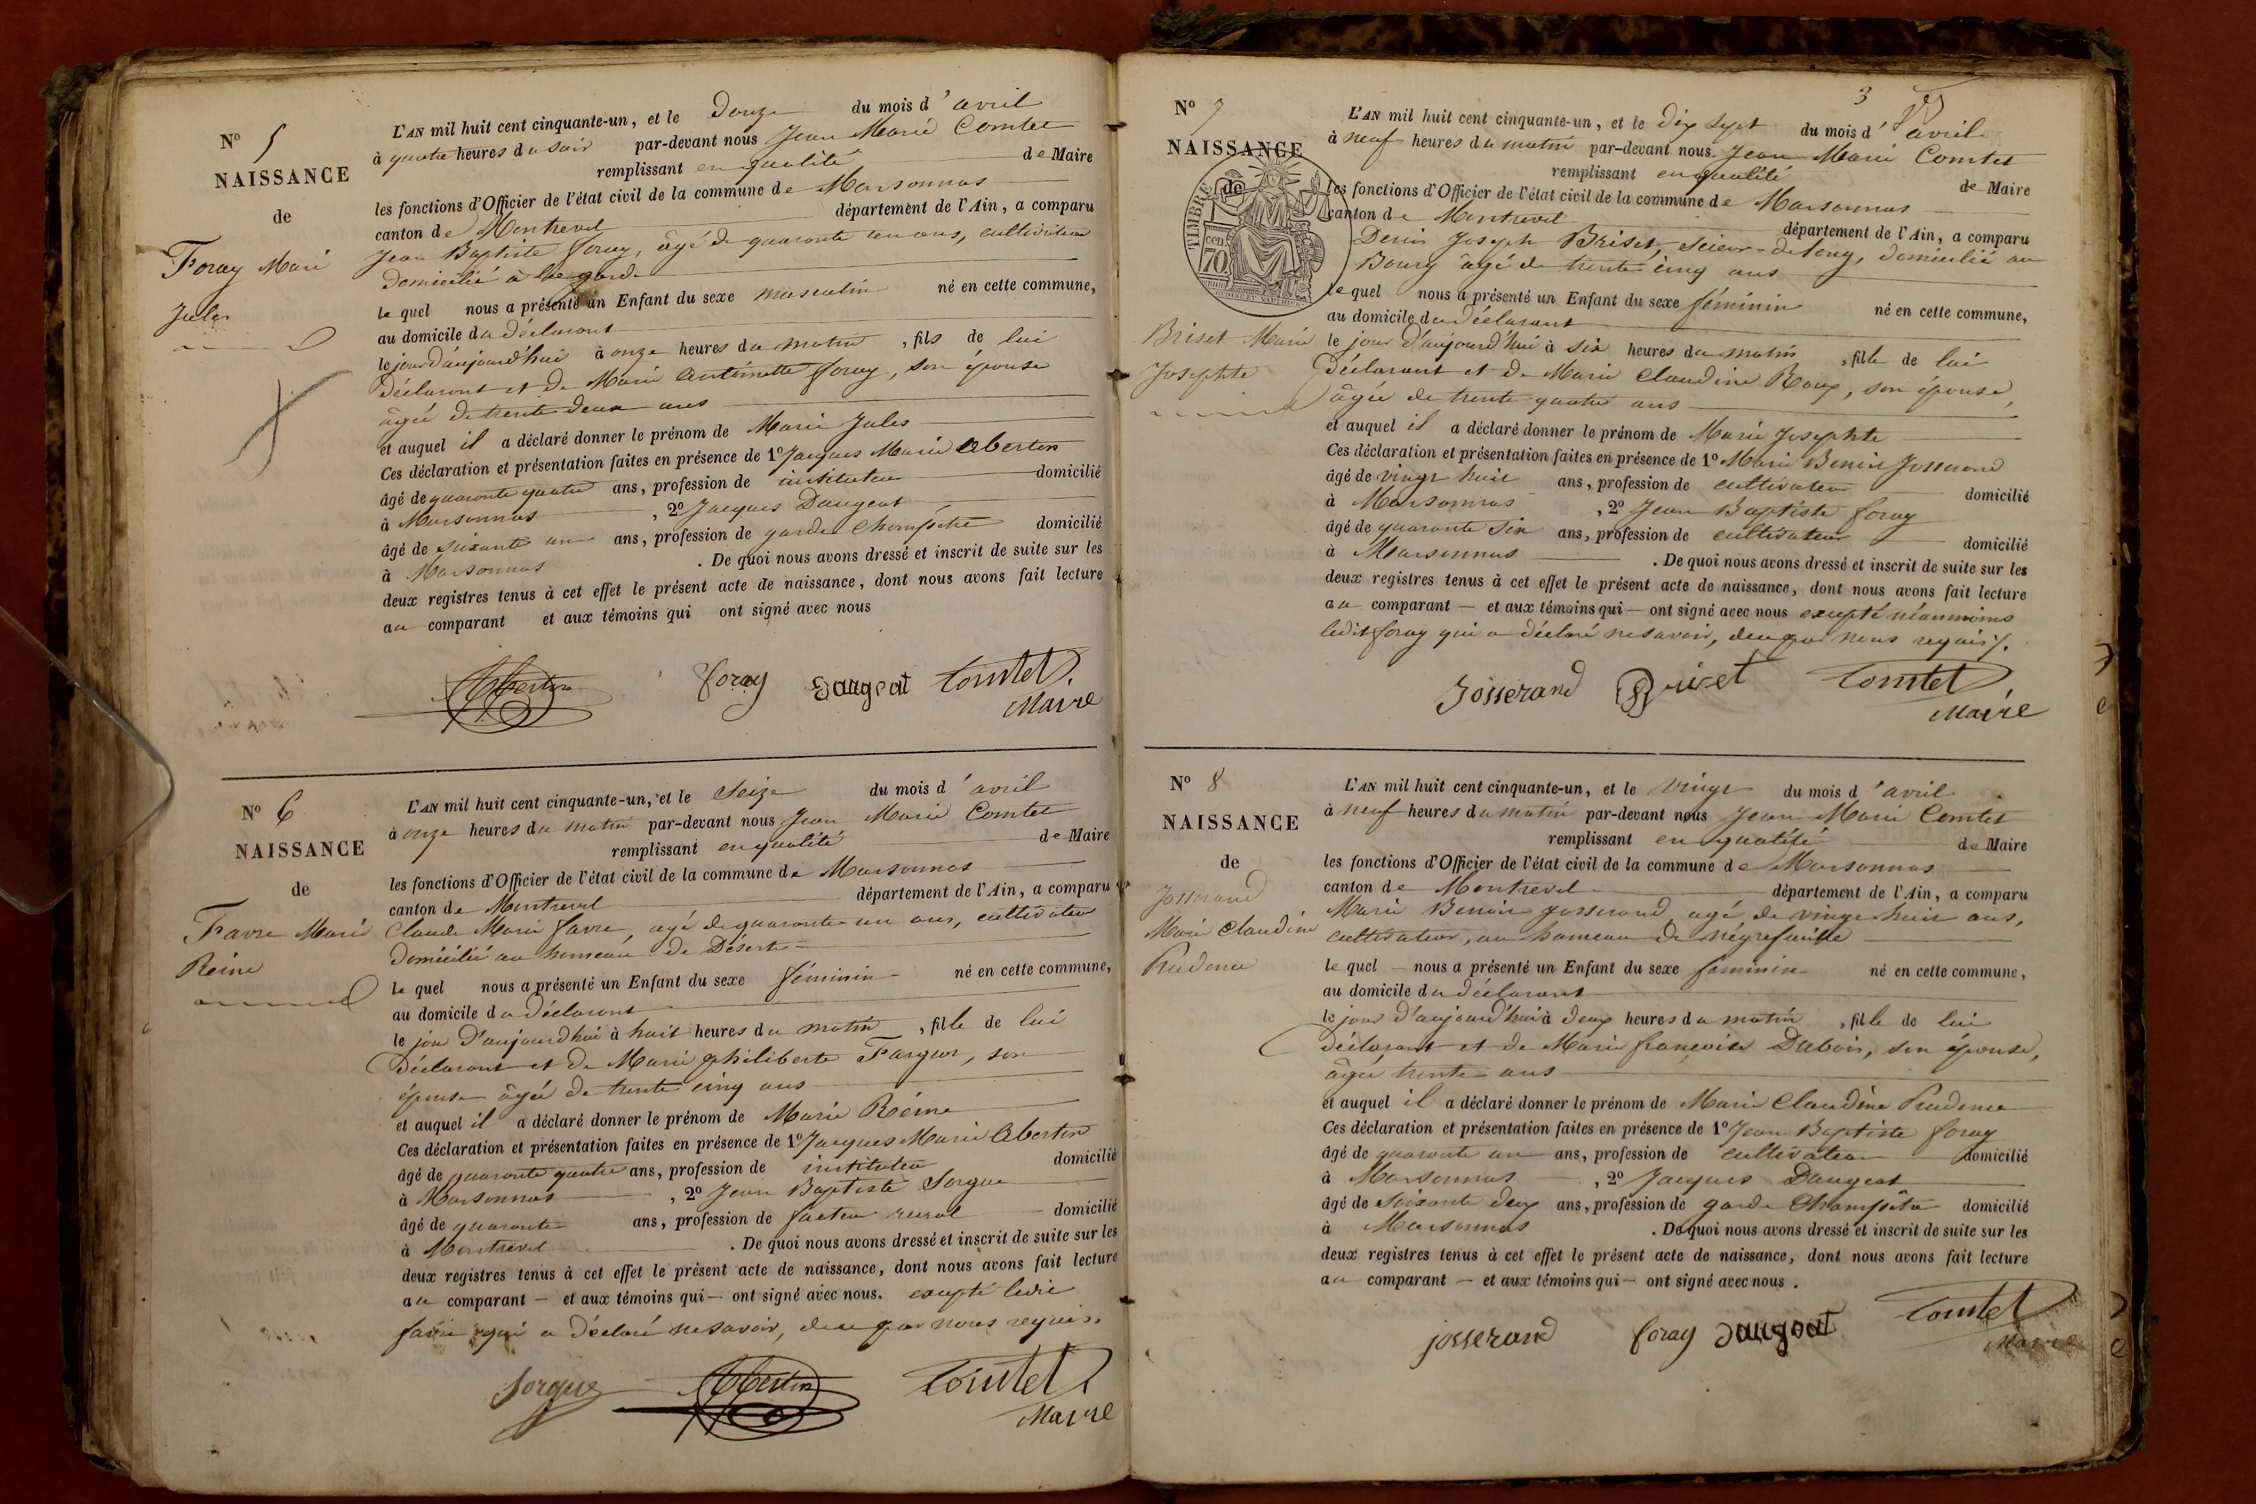 N° 5
NAISSANCE
de
Foray Marie
Jules
L'AN mil huit cent cinquante-un, et le Douze du mois d'avril
à quatre heures du soir par-devant nous Jean Marie Comtet
remplissant en qualité de Maire
les fonctions d'Officier de l'état civil de la commune de Marsonnas
canton de Montrevel département de l'Ain, a comparu
Jean Baptiste foray, âgé de quarante un ans, cultivateur
domicilié à
le quel nous a présenté un Enfant du sexe masculin né en cette commune,
au domicile du déclarant
le jour d'aujourd'hui à onze heures du matin, fils de lui
déclarant et de Marie Antoinette foray, son épouse
âgée de trente deux ans
et auquel il a déclaré donner le prénom de Marie Jules
Ces déclaration et présentation faites en présence de 1° Jacques Marie Abertin
âgé de quarante quatre ans, profession de instituteur domicilié
à Marsonnas, 2° Jacques Daugeat
âgé de soixante un ans, profession de garde Champêtre domicilié
à Marsonnas. De quoi nous avons dressé et inscrit de suite sur les
deux registres tenus à cet effet le présent acte de naissance, dont nous avons fait lecture
au comparant et aux témoins qui ont signé avec nous
Abertin foray Daugeat Comtet
Maire
N° 6
NAISSANCE
de
Favre Marie
Reine
L'AN mil huit cent cinquante-un, et le Seize du mois d'avril
à onze heures du matin par-devant nous Jean Marie Comtet
remplissant en qualité de Maire
les fonctions d'Officier de l'état civil de la commune de Marsonnas
canton de Montrevel département de l'Ain, a comparu
Claude Marie favre, agé de quarante un ans, cultivateur
domicilié au hameau de Désert
le quel nous a présenté un Enfant du sexe féminin né en cette commune,
au domicile du déclarant
le jour d'aujourdhui à huit heures du matin, fille de lui
déclarant et de Marie philiberte, son
épouse âgée de trente cinq ans
et auquel il a déclaré donner le prénom de Marie Reine
Ces déclaration et présentation faites en présence de 1° Jacques Marie Abertin
âgé de quarante quatre ans, profession de instituteur domicilié
à Marsonnas, 2° Jean Baptiste Sorgue
âgé de quarante ans, profession de facteur rural domicilié
à Montrevel. De quoi nous avons dressé et inscrit de suite sur les
deux registres tenus à cet effet le présent acte de naissance, dont nous avons fait lecture
au comparant — et aux témoins qui — ont signé avec nous. excepté ledit
favre qui a déclaré ne savoir, de ce par nous requis.
Sorgue Abertin Comtet
Maire
3
N° 7
NAISSANCE
de
TIMBRE
cen
70
Briset Marie
Josephte
L'AN mil huit cent cinquante-un, et le dix sept du mois d'avril
à neuf heures du matin par-devant nous Jean Marie Comtet
remplissant en qualité de Maire
les fonctions d'Officier de l'état civil de la commune de Marsonnas
canton de Montrevel département de l'Ain, a comparu
Denis Joseph Briset, scieur-de-long, domicilié au
Bourg âgé de trente cinq ans
le quel nous a présenté un Enfant du sexe féminin né en cette commune,
au domicile du déclarant
le jour d'aujourd'hui à six heures du matin, fille de lui
déclarant et de Marie Claudine Roux, son épouse,
âgée de trente quatre ans
et auquel il a déclaré donner le prénom de Marie Josephte
Ces déclaration et présentation faites en présence de 1° Marie Benoit Josserand
âgé de vingt huit ans, profession de cultivateur domicilié
à Marsonnas, 2° Jean Baptiste foray
âgé de quarante six ans, profession de cultivateur domicilié
à Marsonnas. De quoi nous avons dressé et inscrit de suite sur les
deux registres tenus à cet effet le présent acte de naissance, dont nous avons fait lecture
au comparant — et aux témoins qui — ont signé avec nous excepté néanmoins
ledit foray qui a déclaré ne savoir, de ce par nous requis /.
Josserand Briset Comtet
Maire
N° 8
NAISSANCE
de
Josserand
Marie Claudine
Prudence
L'AN mil huit cent cinquante-un, et le vingt du mois d'avril
à neuf heures du matin par-devant nous Jean Marie Comtet
remplissant en qualité de Maire
les fonctions d'Officier de l'état civil de la commune de Marsonnas
canton de Montrevel département de l'Ain, a comparu
Marie Benoit Josserand, agé de vingt huit ans,
cultivateur, au hameau de négrefeuille
le quel — nous a présenté un Enfant du sexe féminin né en cette commune,
au domicile du déclarant
le jour d'aujourd'hui à deux heures du matin, fille de lui
déclarant et de Marie françoise Dubois, son épouse,
âgée trente ans
et auquel il a déclaré donner le prénom de Marie Claudine Prudence
Ces déclaration et présentation faites en présence de 1° Jean Baptiste foray
âgé de quarante un ans, profession de cultivateur domicilié
à Marsonnas, 2° Jacques Daugeat
âgé de Soixante deux ans, profession de garde Champêtre domicilié
à Marsonnas. De quoi nous avons dressé et inscrit de suite sur les
deux registres tenus à cet effet le présent acte de naissance, dont nous avons fait lecture
au comparant — et aux témoins qui — ont signé avec nous.
josserand foray Daugeat Comtet
Maire